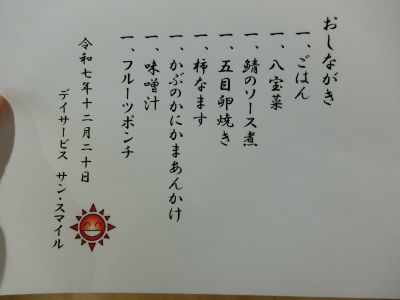 おしながき
一、ごはん
一、八宝菜
一、鯖のソース煮
一、五目卵焼き
一、柿なます
一、かぶのかにかまあんかけ
一、味噌汁
一、フルーツポンチ
令和七年十二月二十日
デイサービス サン・スマイル